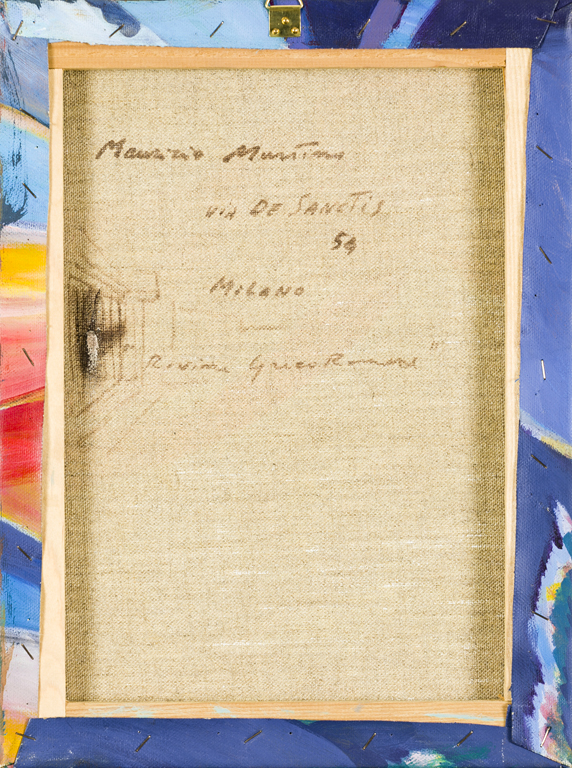 Maurizio Martino
VIA DE SANCTIS
54
MILANO
Rovine Greco Romane"